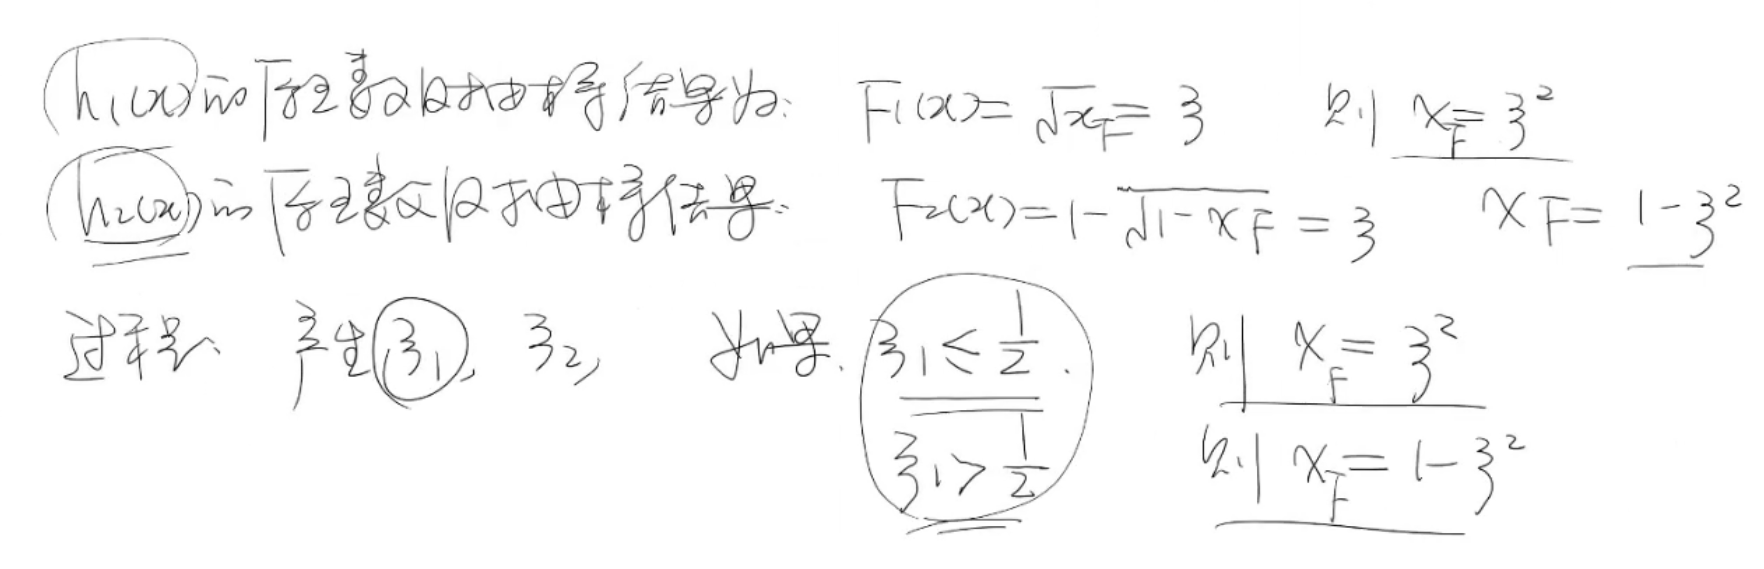 h₁(x)的原函数及抽样结果为: F₁(x)=√x_F=ξ 则 x_F=ξ²
h₂(x)的原函数及抽样结果: F₂(x)=1-√1-x_F=ξ x_F=1-ξ²
过程: 产生ξ₁, ξ₂, 如果 ξ₁≤1/2. 则 x_F=ξ²
ξ₁>1/2 则 x_F=1-ξ²